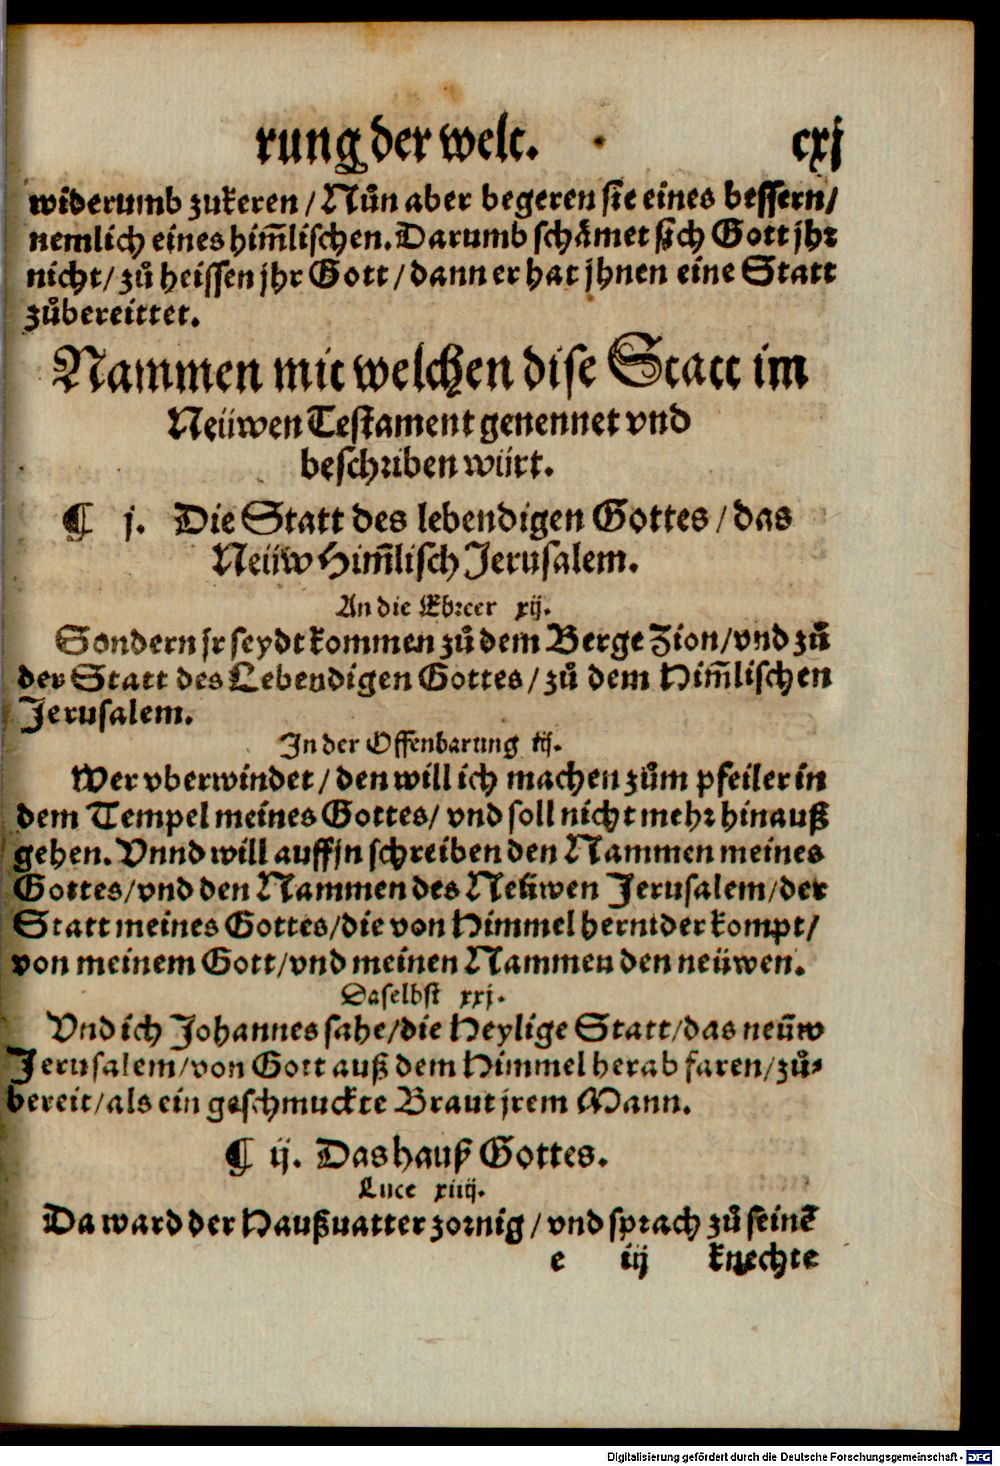 rung der welt. cxj
widerumb zukeren / Nůn aber begeren sie eines bessern /
nemlich eines him̃lischen. Darumb schåmet sich Gott jhr
nicht / zů heissen jhr Gott / dann er hat jhnen eine Statt
zůbereittet.
Nammen mit welchen dise Statt im
Neüwen Testament genennet vnd
beschriben würt.
¶ j. Die Statt des lebendigen Gottes / das
Neüw Him̃lisch Jerusalem.
An die Ebreer xij.
Sondern jr seydt kommen zů dem Berge Zion / vnd zů
der Statt des Lebendigen Gottes / zů dem Him̃lischen
Jerusalem.
In der Offenbarung iij.
Wer vberwindet / den will ich machen zům pfeiler in
dem Tempel meines Gottes / vnd soll nicht mehr hinauß
gehen. Vnnd will auff jn schreiben den Nammen meines
Gottes / vnd den Nammen des Neüwen Jerusalem / der
Statt meines Gottes / die von Himmel hernider kompt /
von meinem Gott / vnd meinen Nammen den neüwen.
Daselbst xxj.
Vnd ich Johannes sahe / die Heylige Statt / das neüw
Jerusalem / von Gott auß dem Himmel herab faren / zů-
bereit / als ein geschmuckte Braut jrem Mann.
¶ ij. Das hauß Gottes.
Luce xiiij.
Da ward der Haußuatter zornig / vnd sprach zů seinẽ
e iij knechte
Digitalisierung gefördert durch die Deutsche Forschungsgemeinschaft - DFG